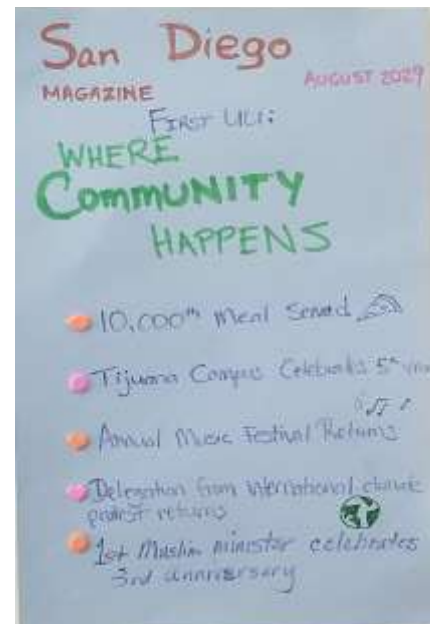 San Diego
MAGAZINE
AUGUST 2029
FIRST UU:
WHERE
COMMUNITY
HAPPENS
10,000th Meal Served
Tijuana Campus Celebrates 5th
Annual Music Festival Returns
Delegation from International climate
protest returns
1st Muslim minister celebrates
3rd anniversary